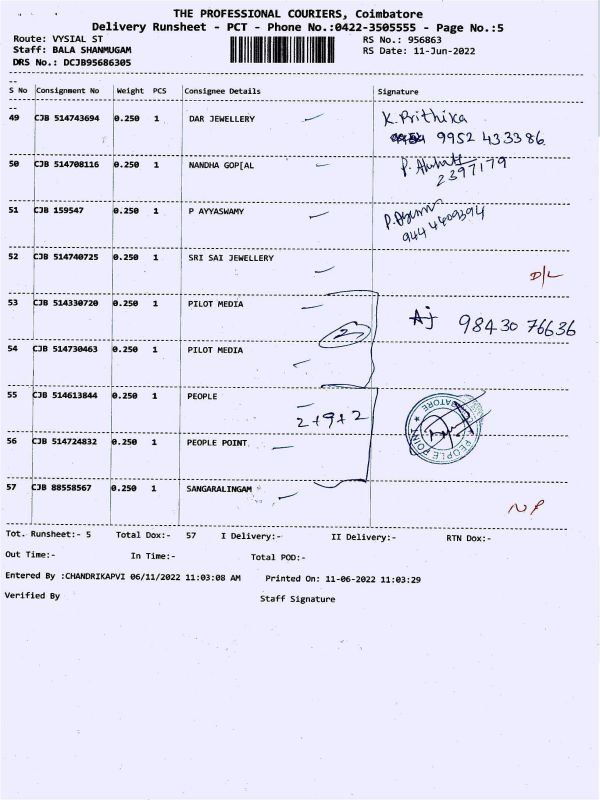 THE PROFESSIONAL COURIERS, Coimbatore
Delivery Runsheet - PCT - Phone No.:0422-3505555 - Page No.:5
Route: VYSIAL ST RS No.: 956863
Staff: BALA SHANMUGAM RS Date: 11-Jun-2022
DRS No.: DCJB95686305
S No Consignment No Weight PCS Consignee Details Signature
49 CJB 514743694 0.250 1 DAR JEWELLERY K. Prithika
9952 433386
50 CJB 514708116 0.250 1 NANDHA GOP[AL
2397179
51 CJB 159547 0.250 1 P AYYASWAMY
9444409394
52 CJB 514740725 0.250 1 SRI SAI JEWELLERY D/L
53 CJB 514330720 0.250 1 PILOT MEDIA
2 98430 76636
54 CJB 514730463 0.250 1 PILOT MEDIA
55 CJB 514613844 0.250 1 PEOPLE
2+9+2
56 CJB 514724832 0.250 1 PEOPLE POINT
PEOPLE POINT
57 CJB 88558567 0.250 1 SANGARALINGAM
NP
Tot. Runsheet:- 5 Total Dox:- 57 I Delivery:- II Delivery:- RTN Dox:-
Out Time:- In Time:- Total POD:-
Entered By :CHANDRIKAPVI 06/11/2022 11:03:08 AM Printed On: 11-06-2022 11:03:29
Verified By Staff Signature